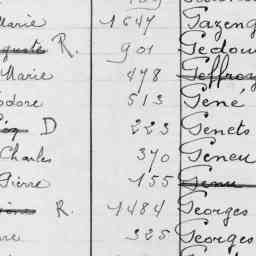 Marie 1647 Gazeng
R. 901 Gedou
Marie 478 Geffroy
odore 513 Gené
D 223 Genets
Charles 370 Geneu
Pierre 155
R. 1484 Georges
rre 325 Georges